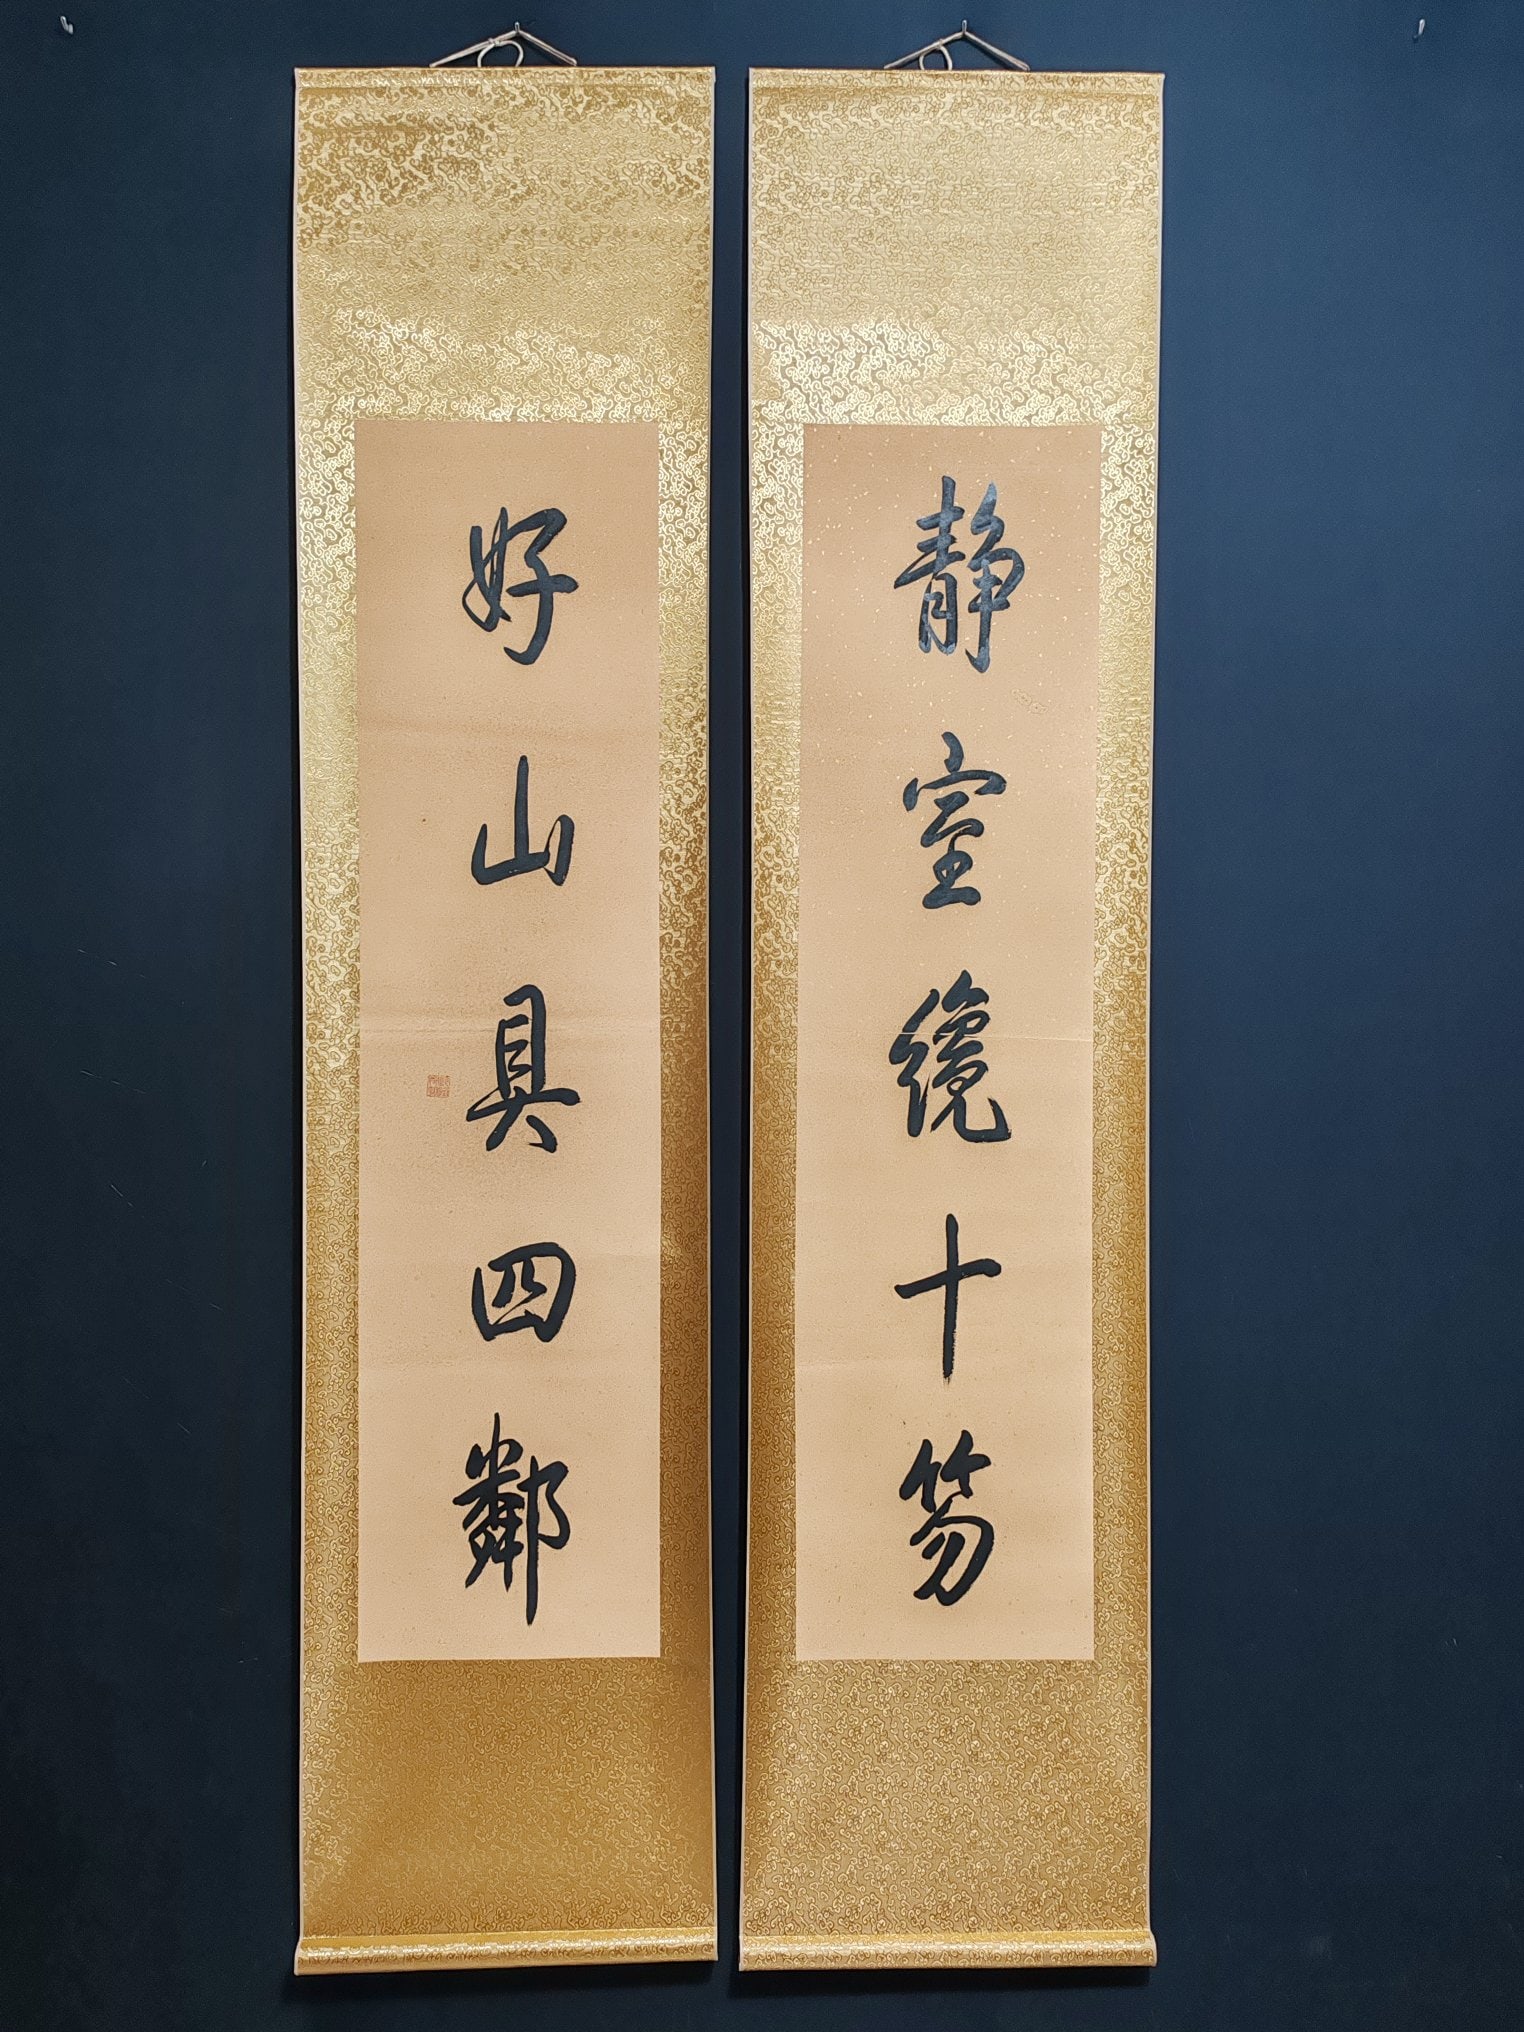 静室纔十笏
好山具四鄰